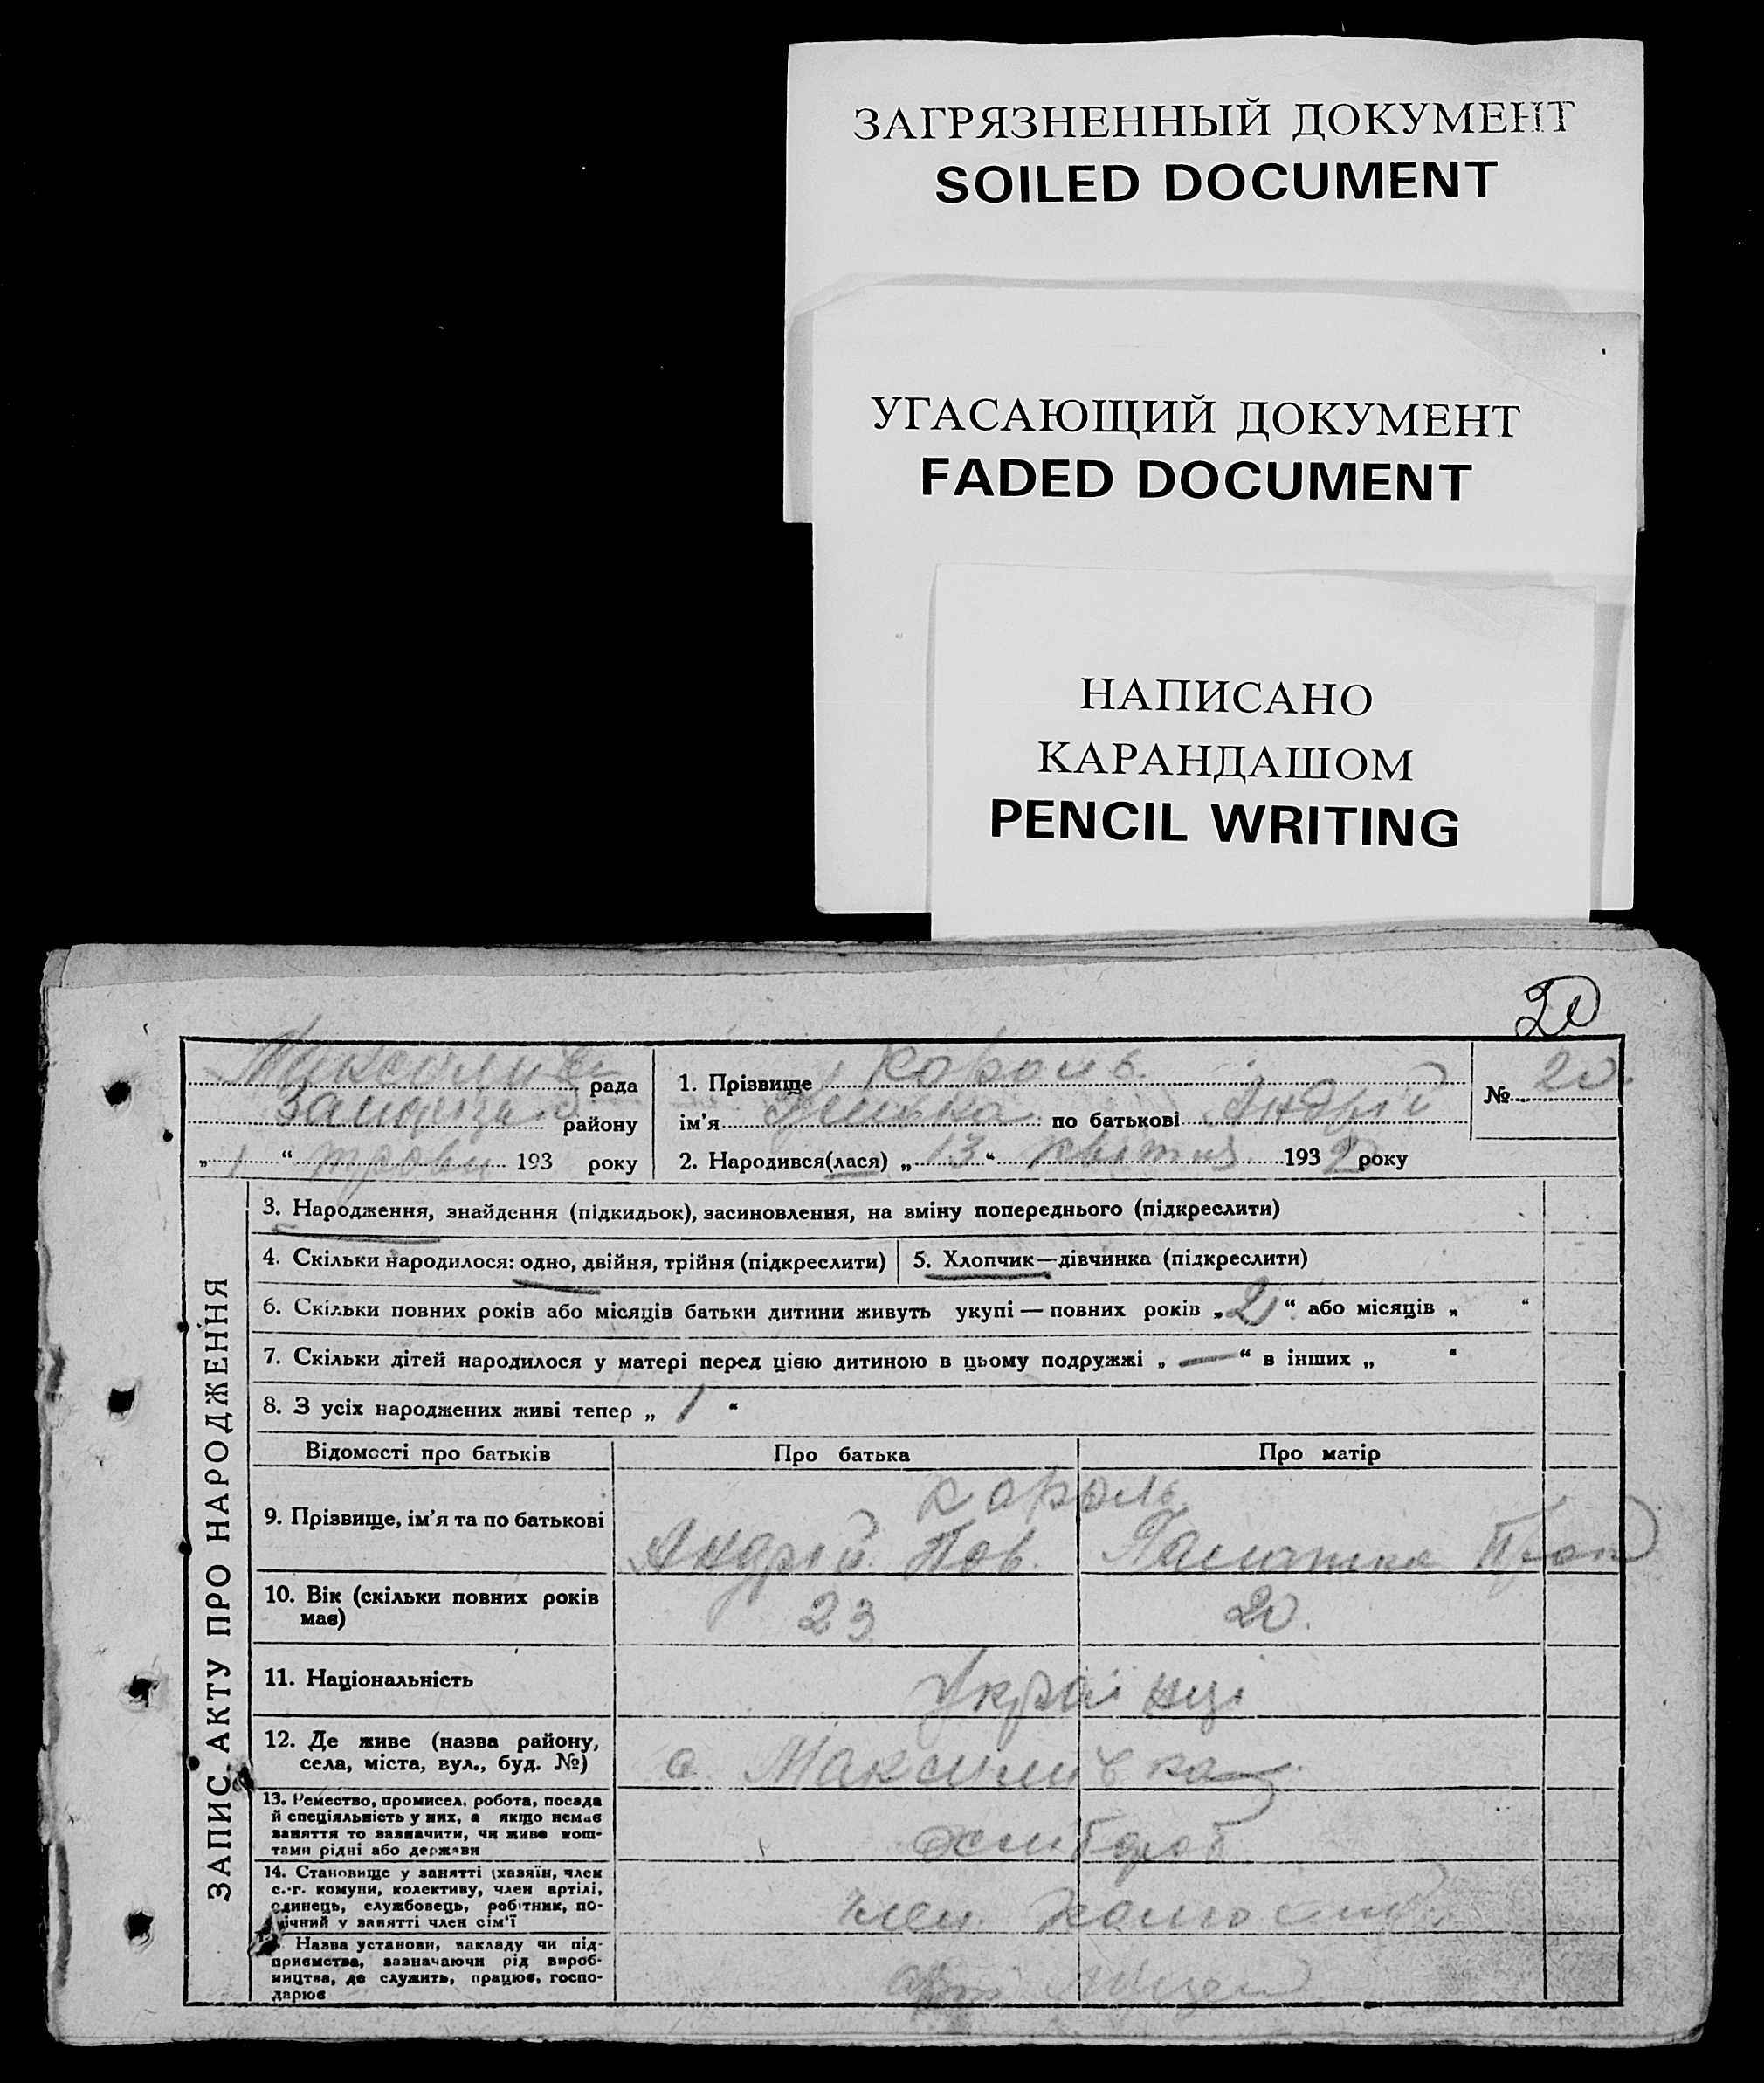 ЗАГРЯЗНЕННЫЙ ДОКУМЕНТ
SOILED DOCUMENT
УГАСАЮЩИЙ ДОКУМЕНТ
FADED DOCUMENT
НАПИСАНО
КАРАНДАШОМ
PENCIL WRITING
20
рада
району
„ 1 “ 193 року
1. Прізвище Король
ім’я по батькові Андрій
№ 20.
2. Народився(лася) „ 13 “ квітня 1932 року
ЗАПИС АКТУ ПРО НАРОДЖЕННЯ
3. Народження, знайдення (підкидьок), засиновлення, на зміну попереднього (підкреслити)
4. Скільки народилося: одно, двійня, трійня (підкреслити)
5. Хлопчик—дівчинка (підкреслити)
6. Скільки повних років або місяців батьки дитини живуть укупі — повних років „ 2 “ або місяців „ “
7. Скільки дітей народилося у матері перед цією дитиною в цьому подружжі „ — “ в інших „ “
8. З усіх народжених живі тепер „ 1 “
Відомості про батьків Про батька Про матір
9. Прізвище, ім’я та по батькові
Король
Андрій Пав.
10. Вік (скільки повних років
має)
23 20.
11. Національність
Українці
12. Де живе (назва району,
села, міста, вул., буд. №)
с. Максимівка
13. Ремество, промисел, робота, посада
й спеціяльність у них, а якщо немає
заняття то зазначити, чи живе кош-
тами рідні або держави
хлібороб
14. Становище у занятті (хазяїн, член
с.-г. комуни, колективу, член артілі,
одинець, службовець, робітник, по-
ічний у занятті член сім’ї
член
Назва установи, закладу чи під-
приємства, зазначаючи рід вироб-
ництва, де служить, працює, госпо-
дарює